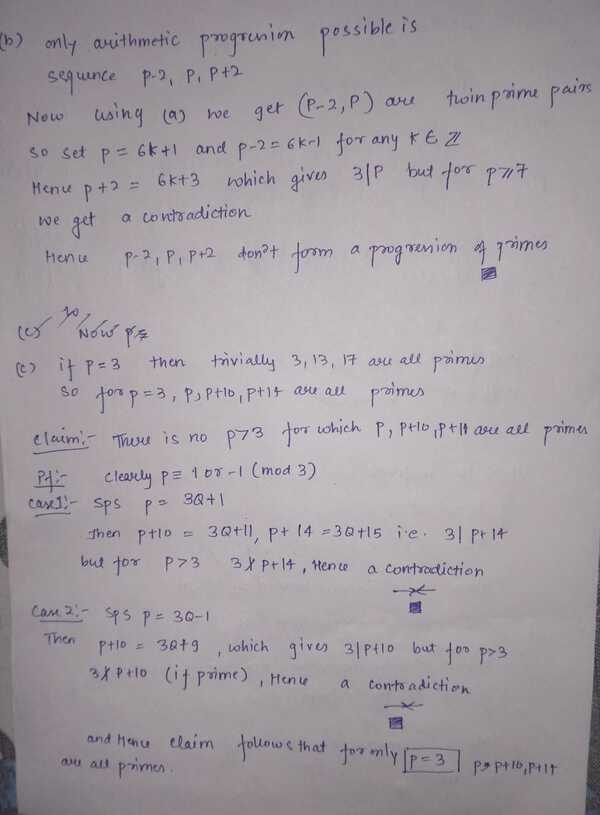 (b) only arithmetic progression possible is
sequence p-2, p, p+2
Now using (a) we get (p-2, p) are twin prime pairs
so set p = 6k+1 and p-2 = 6k-1 for any k ∈ ℤ
Hence p+2 = 6k+3 which gives 3|p but for p≥7
we get a contradiction
Hence p-2, p, p+2 don't form a progression of primes
(c) Now p=
(c) if p=3 then trivially 3, 13, 17 are all primes
so for p=3, p, p+10, p+14 are all primes
claim:- There is no p>3 for which p, p+10, p+14 are all primes
Pf:- clearly p ≡ 1 or -1 (mod 3)
case 1:- Sps p = 3Q+1
Then p+10 = 3Q+11, p+14 = 3Q+15 i.e. 3|p+14
but for p>3 3∤p+14, Hence a contradiction
case 2:- Sps p = 3Q-1
Then p+10 = 3Q+9, which gives 3|p+10 but for p>3
3∤p+10 (if prime), Hence a contradiction
and Hence claim follows that for only p=3 p, p+10, p+14
are all primes.